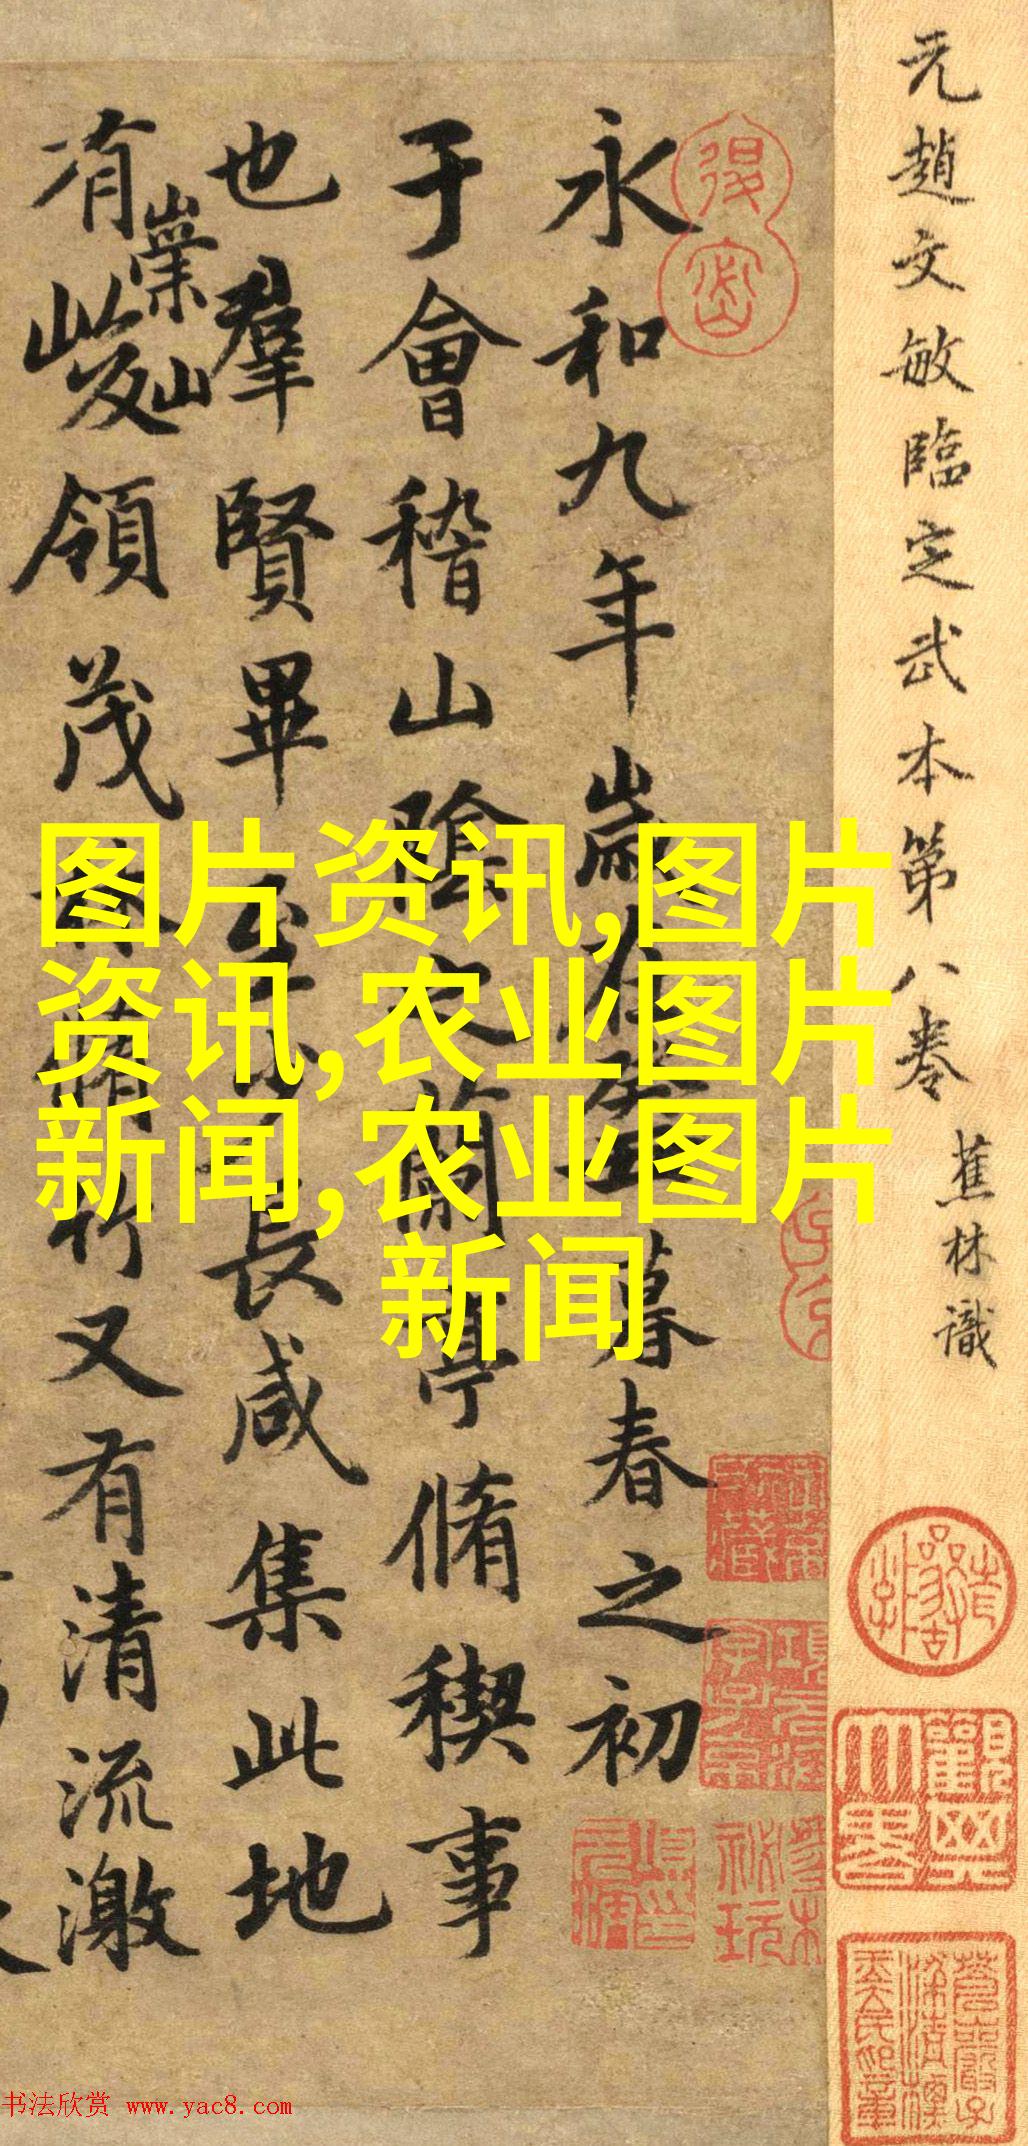 元趙文敏臨定武本第八卷
蕉林識
永和九年歲在癸丑暮春之初
于會稽山陰之蘭亭脩稧事
也羣賢畢至少長咸集此地
有崇山
峻領茂林脩竹又有清流激
图片资讯,图片
资讯,农业图片
新闻,农业图片
新闻
书法欣赏 www.yac8.com